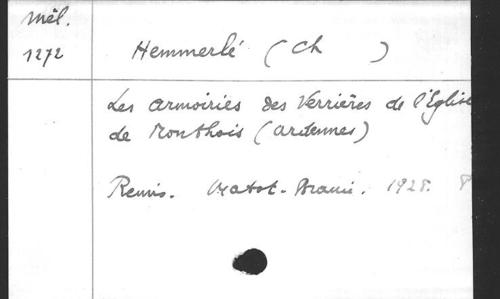 Mél.
1272
Hemmerlé (Ch )
Les armoiries des Verrières de l'Eglise
de Monthois (Ardennes)
Reims. Matot-Braine. 1928. P